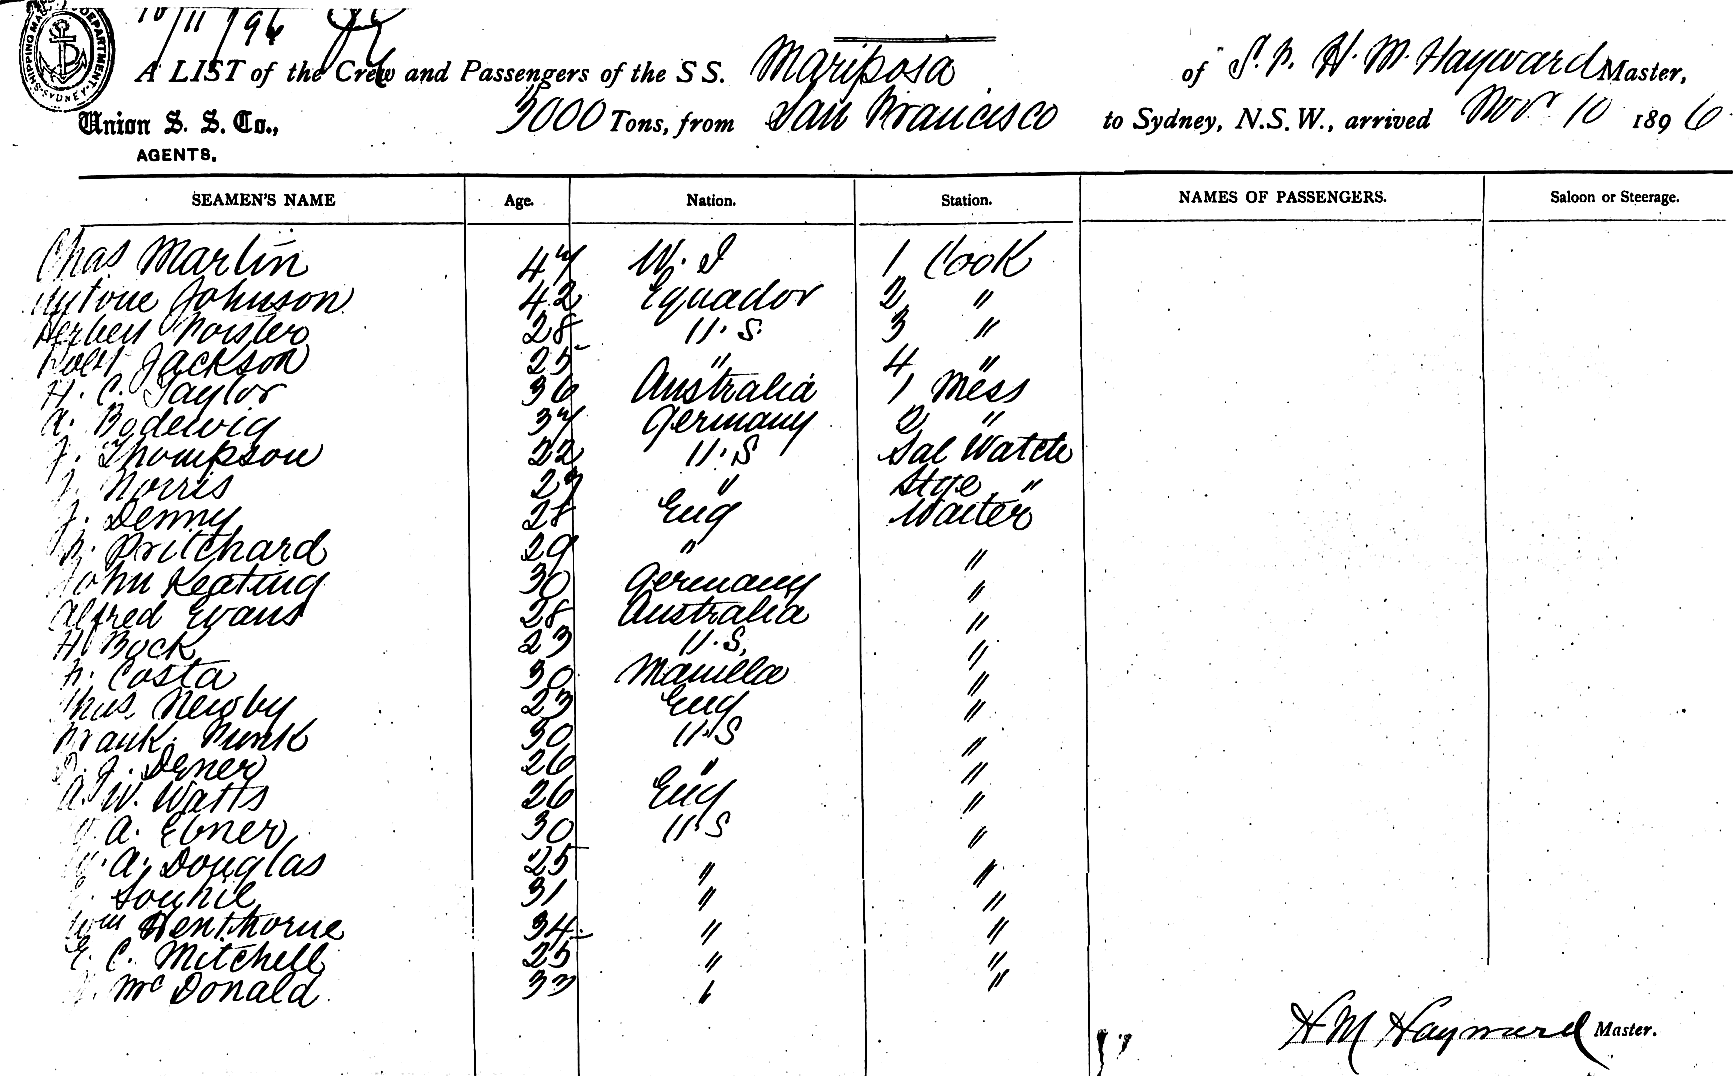 SHIPPING MASTER DEPARTMENT SYDNEY
10/11/96
A LIST of the Crew and Passengers of the S S. Mariposa of S. F. H. M. Hayward Master,
Union S. S. Co., 3000 Tons, from San Francisco to Sydney, N.S.W., arrived Nov 10 1896
AGENTS.
SEAMEN'S NAME Age. Nation. Station. NAMES OF PASSENGERS. Saloon or Steerage.
Chas Martin 47 W. I 1 Cook
Antone Johnson 42 Equador 2 "
Herbert 28 U. S. 3 "
Robt Jackson 25 " 4 "
H. C. Taylor 36 Australia 1 Mess
A. Bodewig 37 Germany 2 "
J. Thompson 22 U. S Sal Watch
Norris 27 " Stge "
J. Denny 28 Eng Waiter
Pritchard 29 " "
John Keating 30 Germany "
Alfred Evans 28 Australia "
H Bock 23 U. S. "
Costa 30 Manilla "
Thos. Newby 23 Eng "
Frank 30 U. S "
J. Dener 26 " "
A. W. Watts 26 Eng "
A. Ebner 30 U. S "
A. Douglas 25 " "
31 " "
Wm Henthorne 34 " "
E. C. Mitchell 25 " "
McDonald 33 " "
H M Hayward Master.